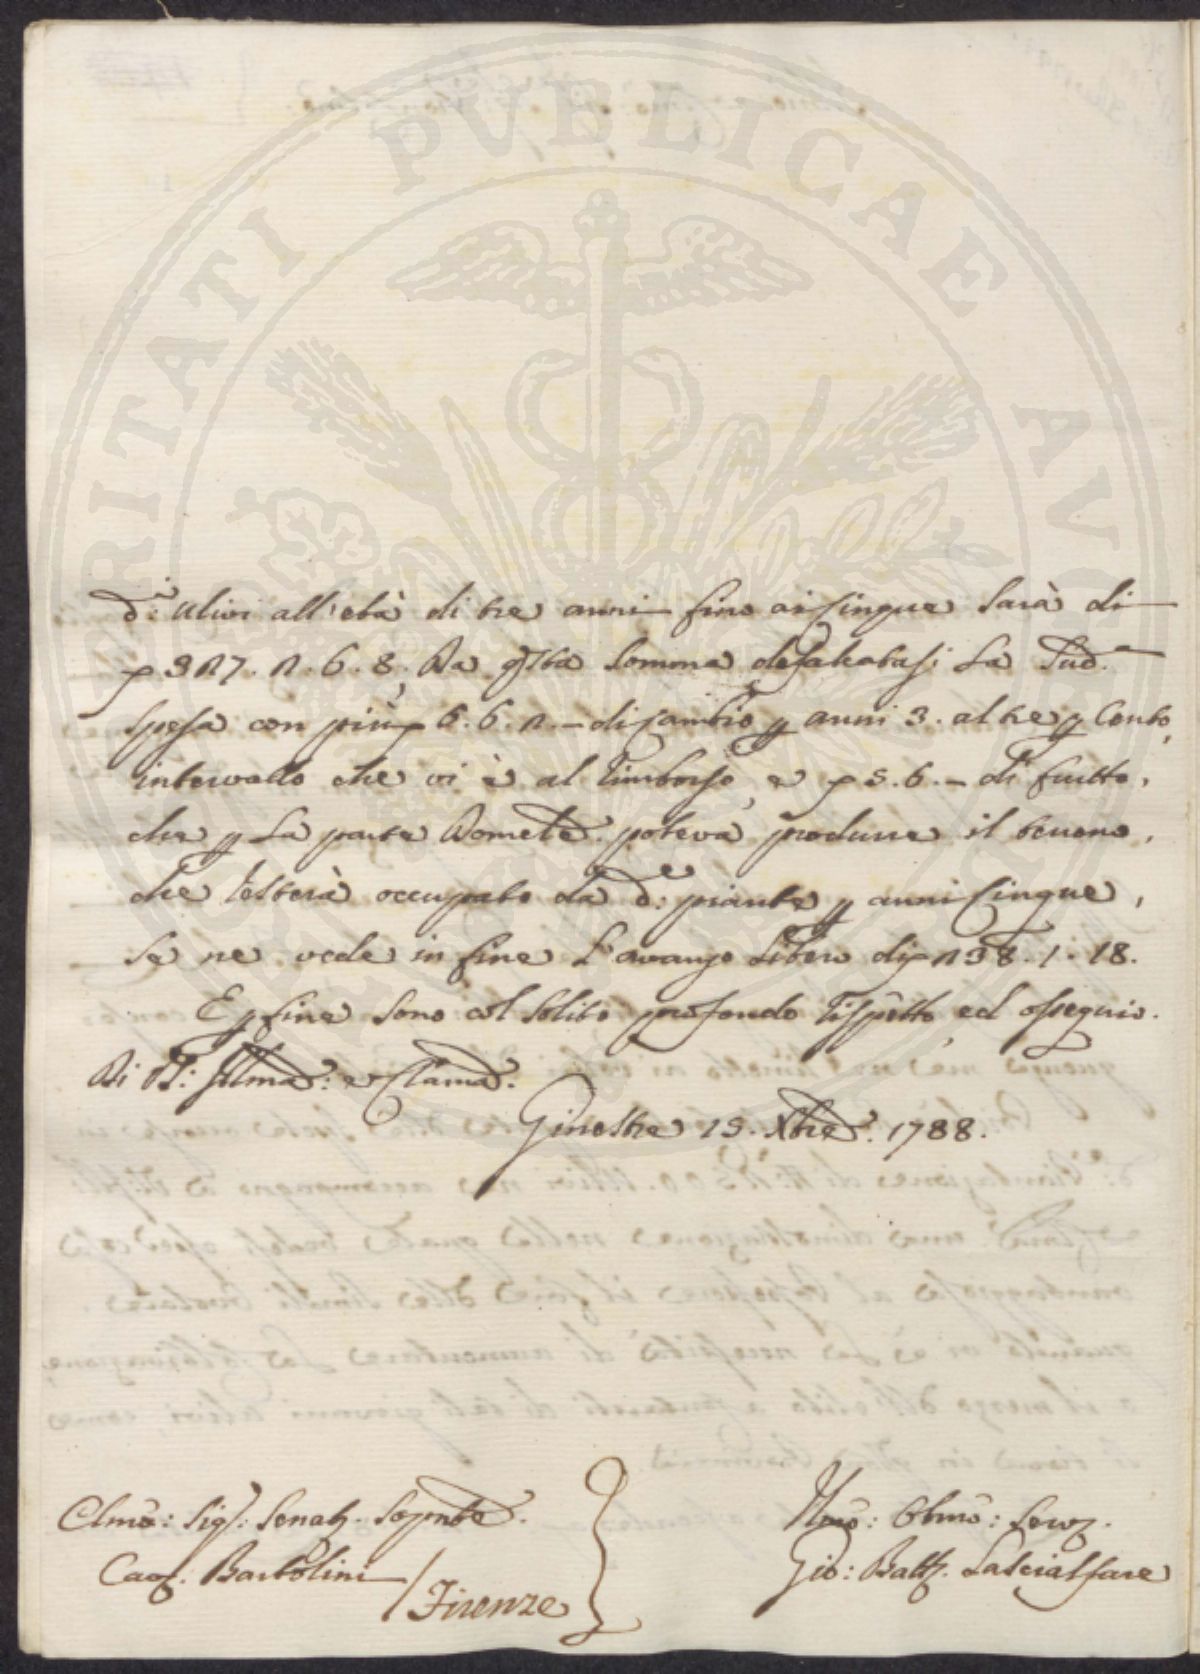 PUBLICAE
d.i Ulivi all'età di tre anni fino ai Cinque sarà di
317. 1. 6. 8. Da q͠sta Somma defalcatasi la Sud.a
Spesa con più 6. 6. 1. – di Cambio p anni 3. altre p Conto,
intervallo che vi è al rimborso, e 5. 6. – di frutto,
che p La parte Dom.le poteva produrre il terreno,
che resterà occupato da d.e piante p anni Cinque,
se ne vede in fine L'avanzo Libero di 138. 1. 18.
E p fine sono col solito profondo rispetto, ed ossequio.
Di VS: Illma: e Clama.
Ginestre 15. Xbre. 1788.
Clmo: Sig.r Senat.
Cav. Bartolini / Firenze
Umo: Oblmo: Serv.
Gio: Batt. Lascialfare